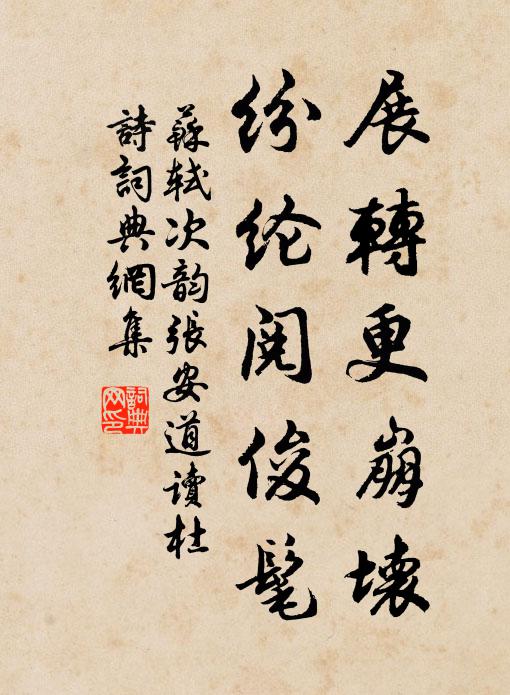 展轉更崩壞
纷纶閱俊髦
蘇軾次韵張安道讀杜
詩詞典網集
詞典网印